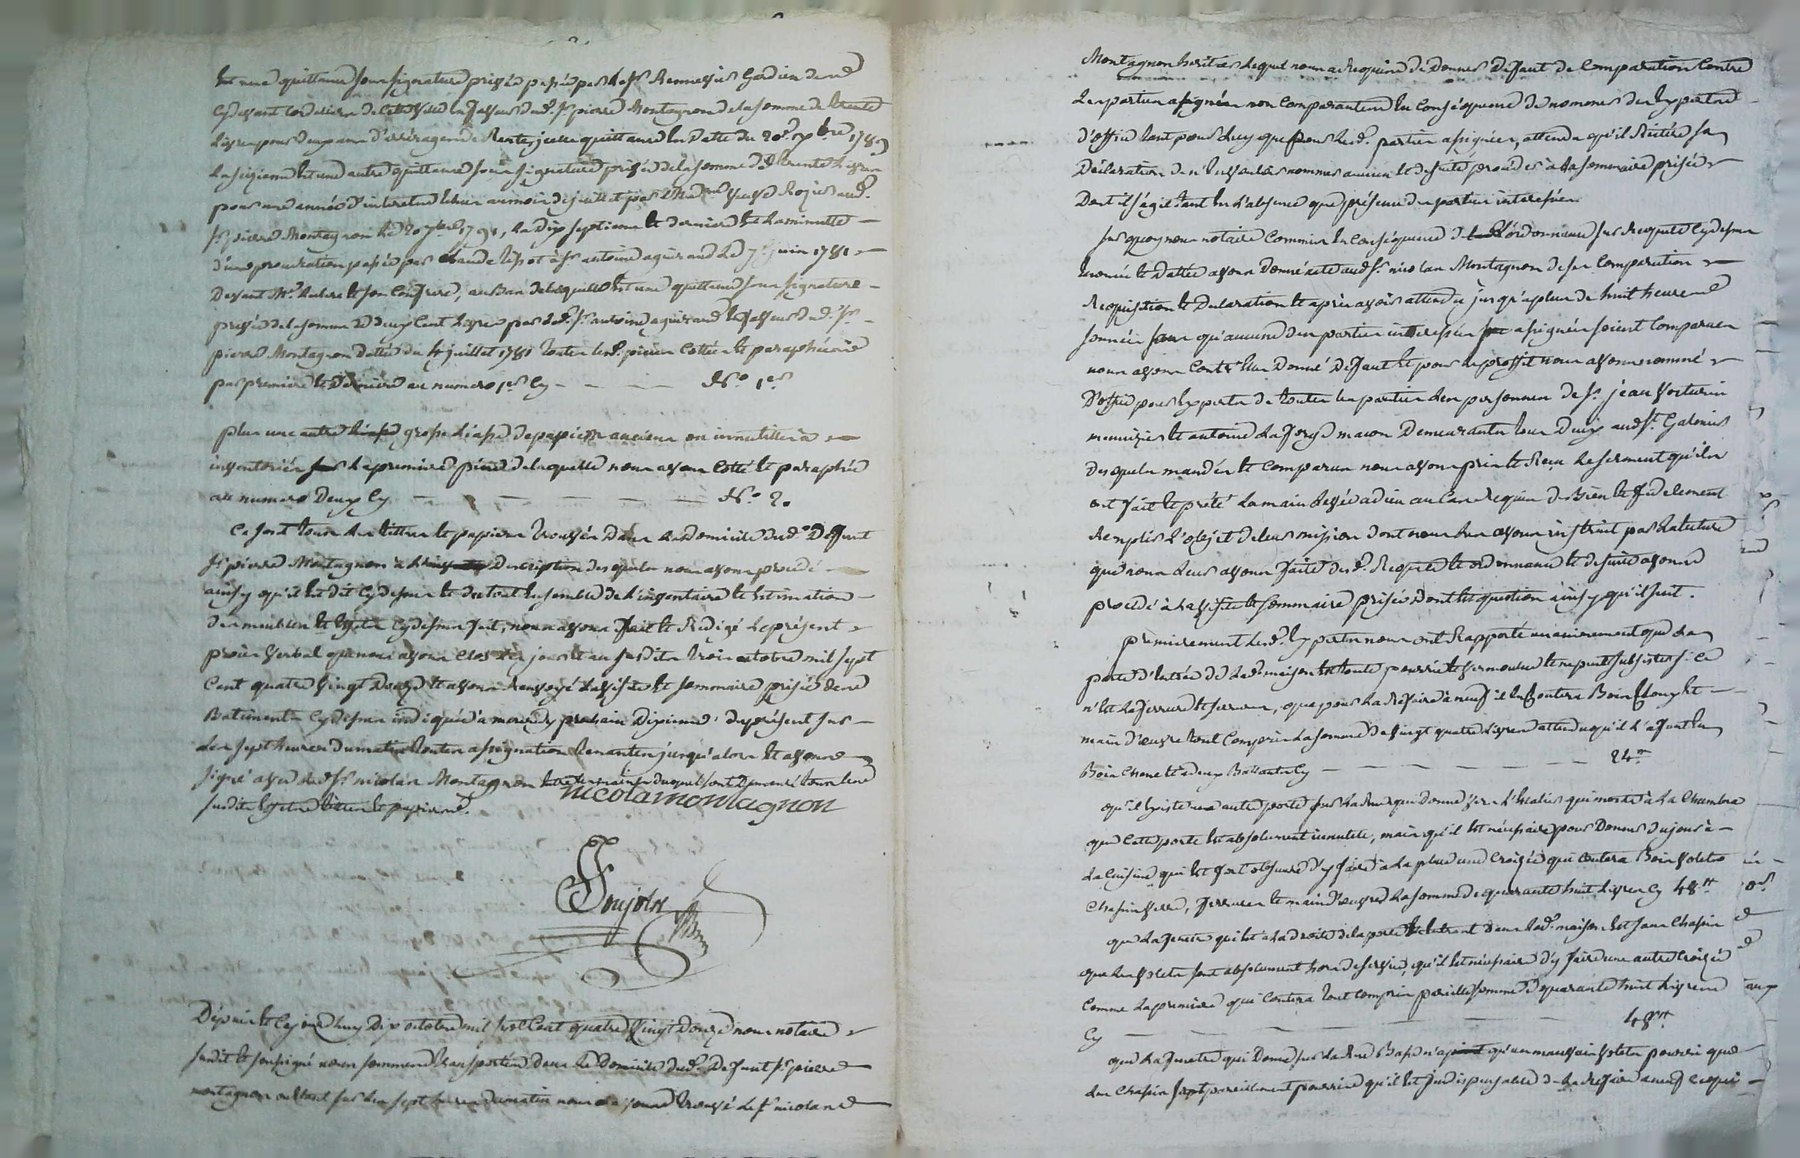 une quittance sous signature privée passée par le Sr Gardien de
cydevant cordeliers de cette ville en faveur dud. Sr pierre Montagnon de la somme de trente
livres pour d'arrérages de Rente, icelle quittance en datte du 20e 1789
La sizieme est une autre quittance sous signature privée de la somme de trente livres
pour une année d'interets
Sr pierre Montagnon le 20 7bre 1791, la dix septieme et derniere est la minutte
d'une procuration passée par Claude à Sr antoine aguiraud le 7e juin 1781
Devant Me et son confrere, au bas de laquelle est une quittance sous signature
privée de la somme de deux cent livres par led. Sr antoine aguiraud en faveur dud. Sr
pierre Montagnon dattée du juillet 1781 toutes lesd. pieces cottées et paraphées
par premiere et derniere au numero 1er Cy - - - No 1er
plus une autre liasse, grosse liasse de papiers anciens ou innutilles à
inventorier sur la premiere piece de laquelle nous avons cotté et paraphé
au numero Deux Cy - - - No 2.
Ce sont tous les tittres et papiers trouvés dans le domicile dud. Deffunt
Sr pierre Montagnon à description desquels nous avons procedé
ainsy qu'il est dit cydessus et du tout ensemble de l'inventaire et estimation
des meubles et effets cydessus fait, nous avons fait et Redigé le présent
procès verbal que nous avons clos les jour et an susdits trois octobre mil sept
Cent quatre vingt Douze et avons renvoyé la visite et sommaire prisée des
Batiments cydessus indiquée à mercredy prochain dixieme du présent sur
les sept heures du matin toutes assignations tenantes jusqu'alors et avons
signé avec led. Sr nicolas Montagnon
susdits effets tittres et papiers.
nicolas montagnon
Soujolx
Depuis et Cejourd'huy Dix octobre mil sept Cent quatre Vingt Douze nous notaire
susdit et soussigné nous sommes transportés dans le Domicile dud. Deffunt Sr pierre
montagnon où étant sur les sept heures du matin nous avons trouvé le Sr nicolas
Montagnon héritier lequel nous a Requis de Donner Deffaut de Comparution Contre
les parties assignées non Comparantes en Conséquence de nommer des Experts
d'office tant pour luy que pour lesd. parties assignées, attendu qu'il Réitère sa
Déclaration de n'en vouloir nommer aucun et de suite proceder à la sommaire prisée
Dont il s'agit tant en l'absence que présence des parties intéressées
sur quoy nous notaire Commis en Conséquence de l'ordonnance sur Requete Cydessus
énoncée et Dattée avons Donné acte aud. Sr nicolas Montagnon de ses Comparution
Requisition et Declaration et après avoir attendu jusqu'à plus de huit heures
sonnées sans qu'aucune des parties intéressées assignées soient Comparues
nous avons Contre Elles Donné Deffaut et pour le proffit nous avons nommé
D'office pour Experts de toutes les parties les personnes de Sr jean Voiturin
menuizier et antoine Laforge macon Demeurants tous Deux aud. St. Galmier
Desquels mandés et Comparus nous avons pris et Reçu le serment qu'ils
ont fait et preté la main levée à dieu au Cas Requis de Bien et fidelement
Remplir l'objet de leur mission dont nous les avons instruit par la lecture
que nous leur avons faite desd. Requete et ordonnance et de suite avons
procedé à la visite et sommaire prisée dont est question ainsy qu'il suit.
premierement lesd. Experts nous ont Rapporté unanimement que la
porte d'entrée de lad. maison est toute pourrie et vermoulue et ne peut subsister si ce
n'est la ferrure et serrure, que pour la Refaire à neuf il En Coutera Bois Clous et
main d'œuvre tout Compris la somme de vingt quatre livres attendu qu'il l'a faut en
Bois Chene et à deux Battants Cy - - - 24 #
qu'il Existe une autre porte sur la Rue qui donne vers l'Escalier qui monte à la Chambre
que Cette porte est absolument innutile, mais qu'il est nécessaire pour Donner du jour à
La Cuisine qui est fort obscure d'y faire à la place une Croizée qui Coutera Bois volets
Chassis verre, ferrures et main d'œuvre la somme de quarante huit livres Cy 48 #
que la fenetre qui est à la droite de la porte En Entrant dans lad. maison Est sans Chassis
que les volets sont absolument hors de service, qu'il est nécessaire d'y faire une autre Croizée
Comme la premiere qui Coutera tout Compris pareille somme de quarante huit livres
Cy - - - 48 #
que la fenetre qui Donne sur la Rue Basse n'a qu'un mauvais volets pourri que
Les Chassis sont pareillement pourris qu'il est indispensable de la Refaire à neuf ce qui